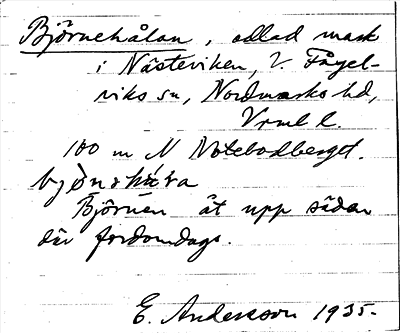 Björnehålan, odlad mark
i Nästeviken, V. Fågel-
viks sn, Nordmarks hd,
Vrml l.
100 m N Notebodberget.
Björnen åt upp säden
där fordomdags.
E. Andersson 1935.